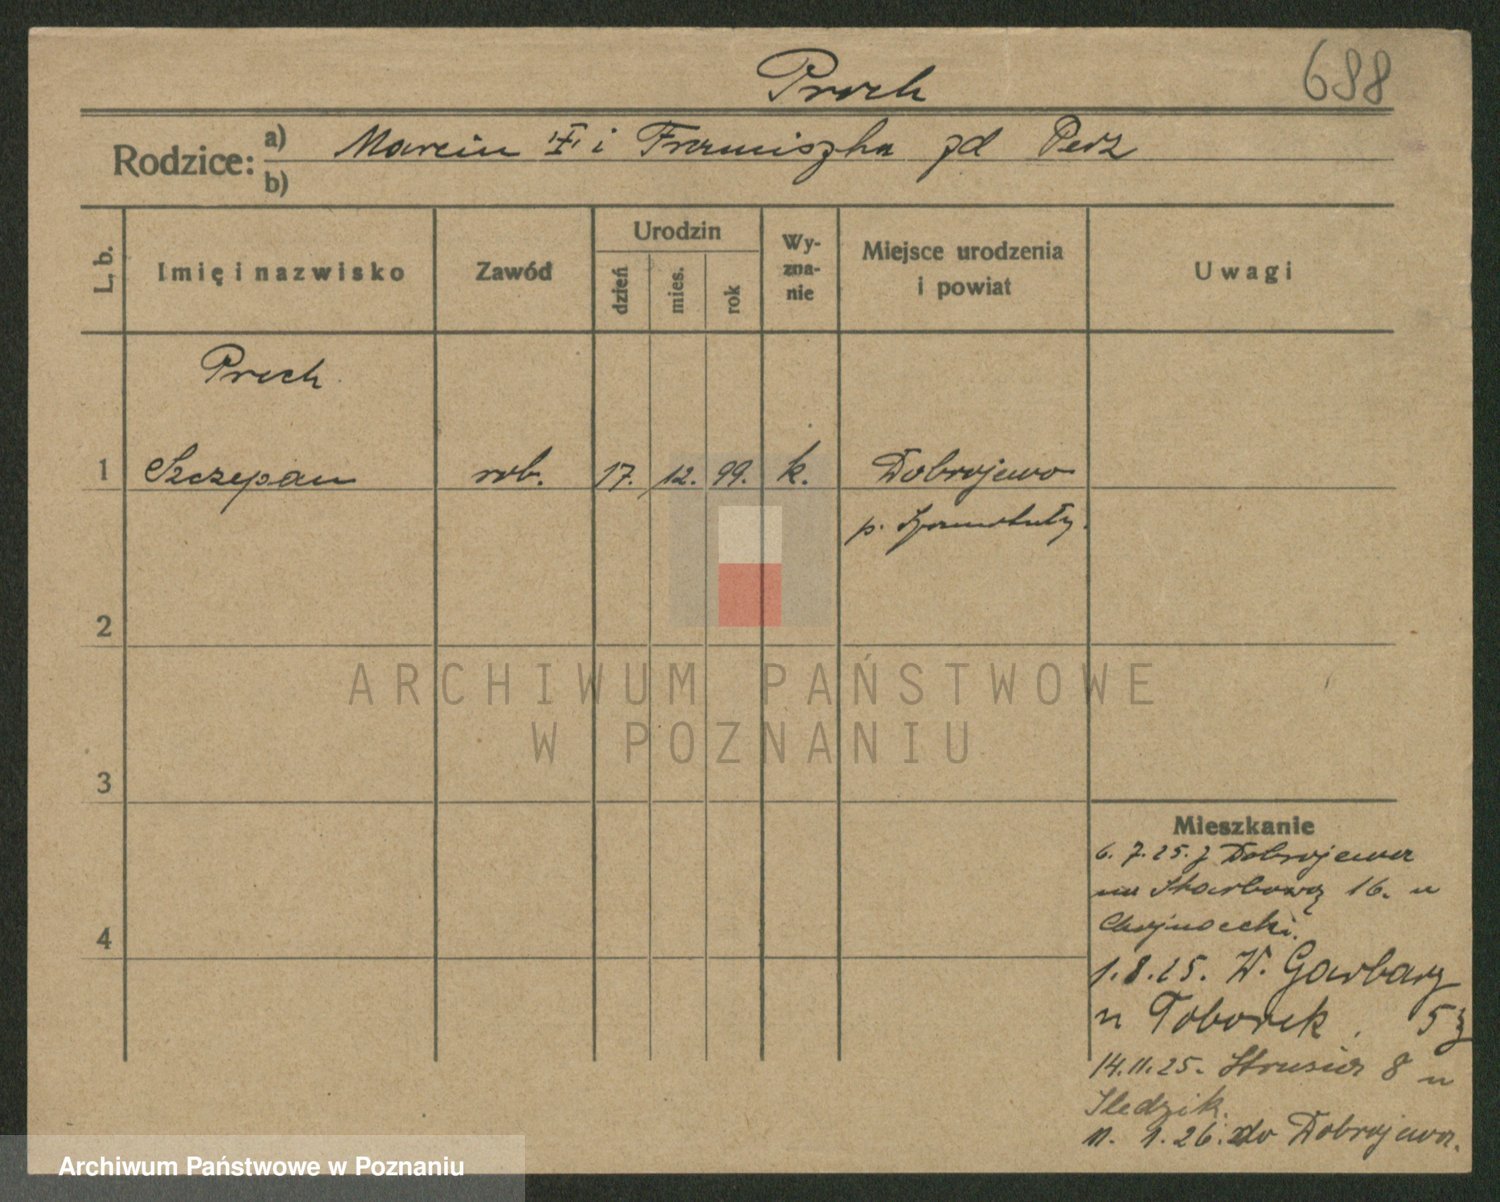 Proch
688
Rodzice: a) Marcin i Franciszka zd Perz
b)
L. b. Imię i nazwisko Zawód Urodzin dzień mies. rok Wyznanie Miejsce urodzenia i powiat Uwagi
Proch
1 Szczepan rob. 17. 12. 99. k. Dobrojewo
p. Szamotuły.
2
3
4
Mieszkanie
6. 7. 25. z Dobrojewa
na Skarbową 16. u
Chojnacki.
1.8.25. W. Garbary
u Toborek. 5
14.11.25. Strusia 8 u
Śledzik.
11. 1. 26. do Dobrojewa.
ARCHIWUM PAŃSTWOWE
W POZNANIU
Archiwum Państwowe w Poznaniu